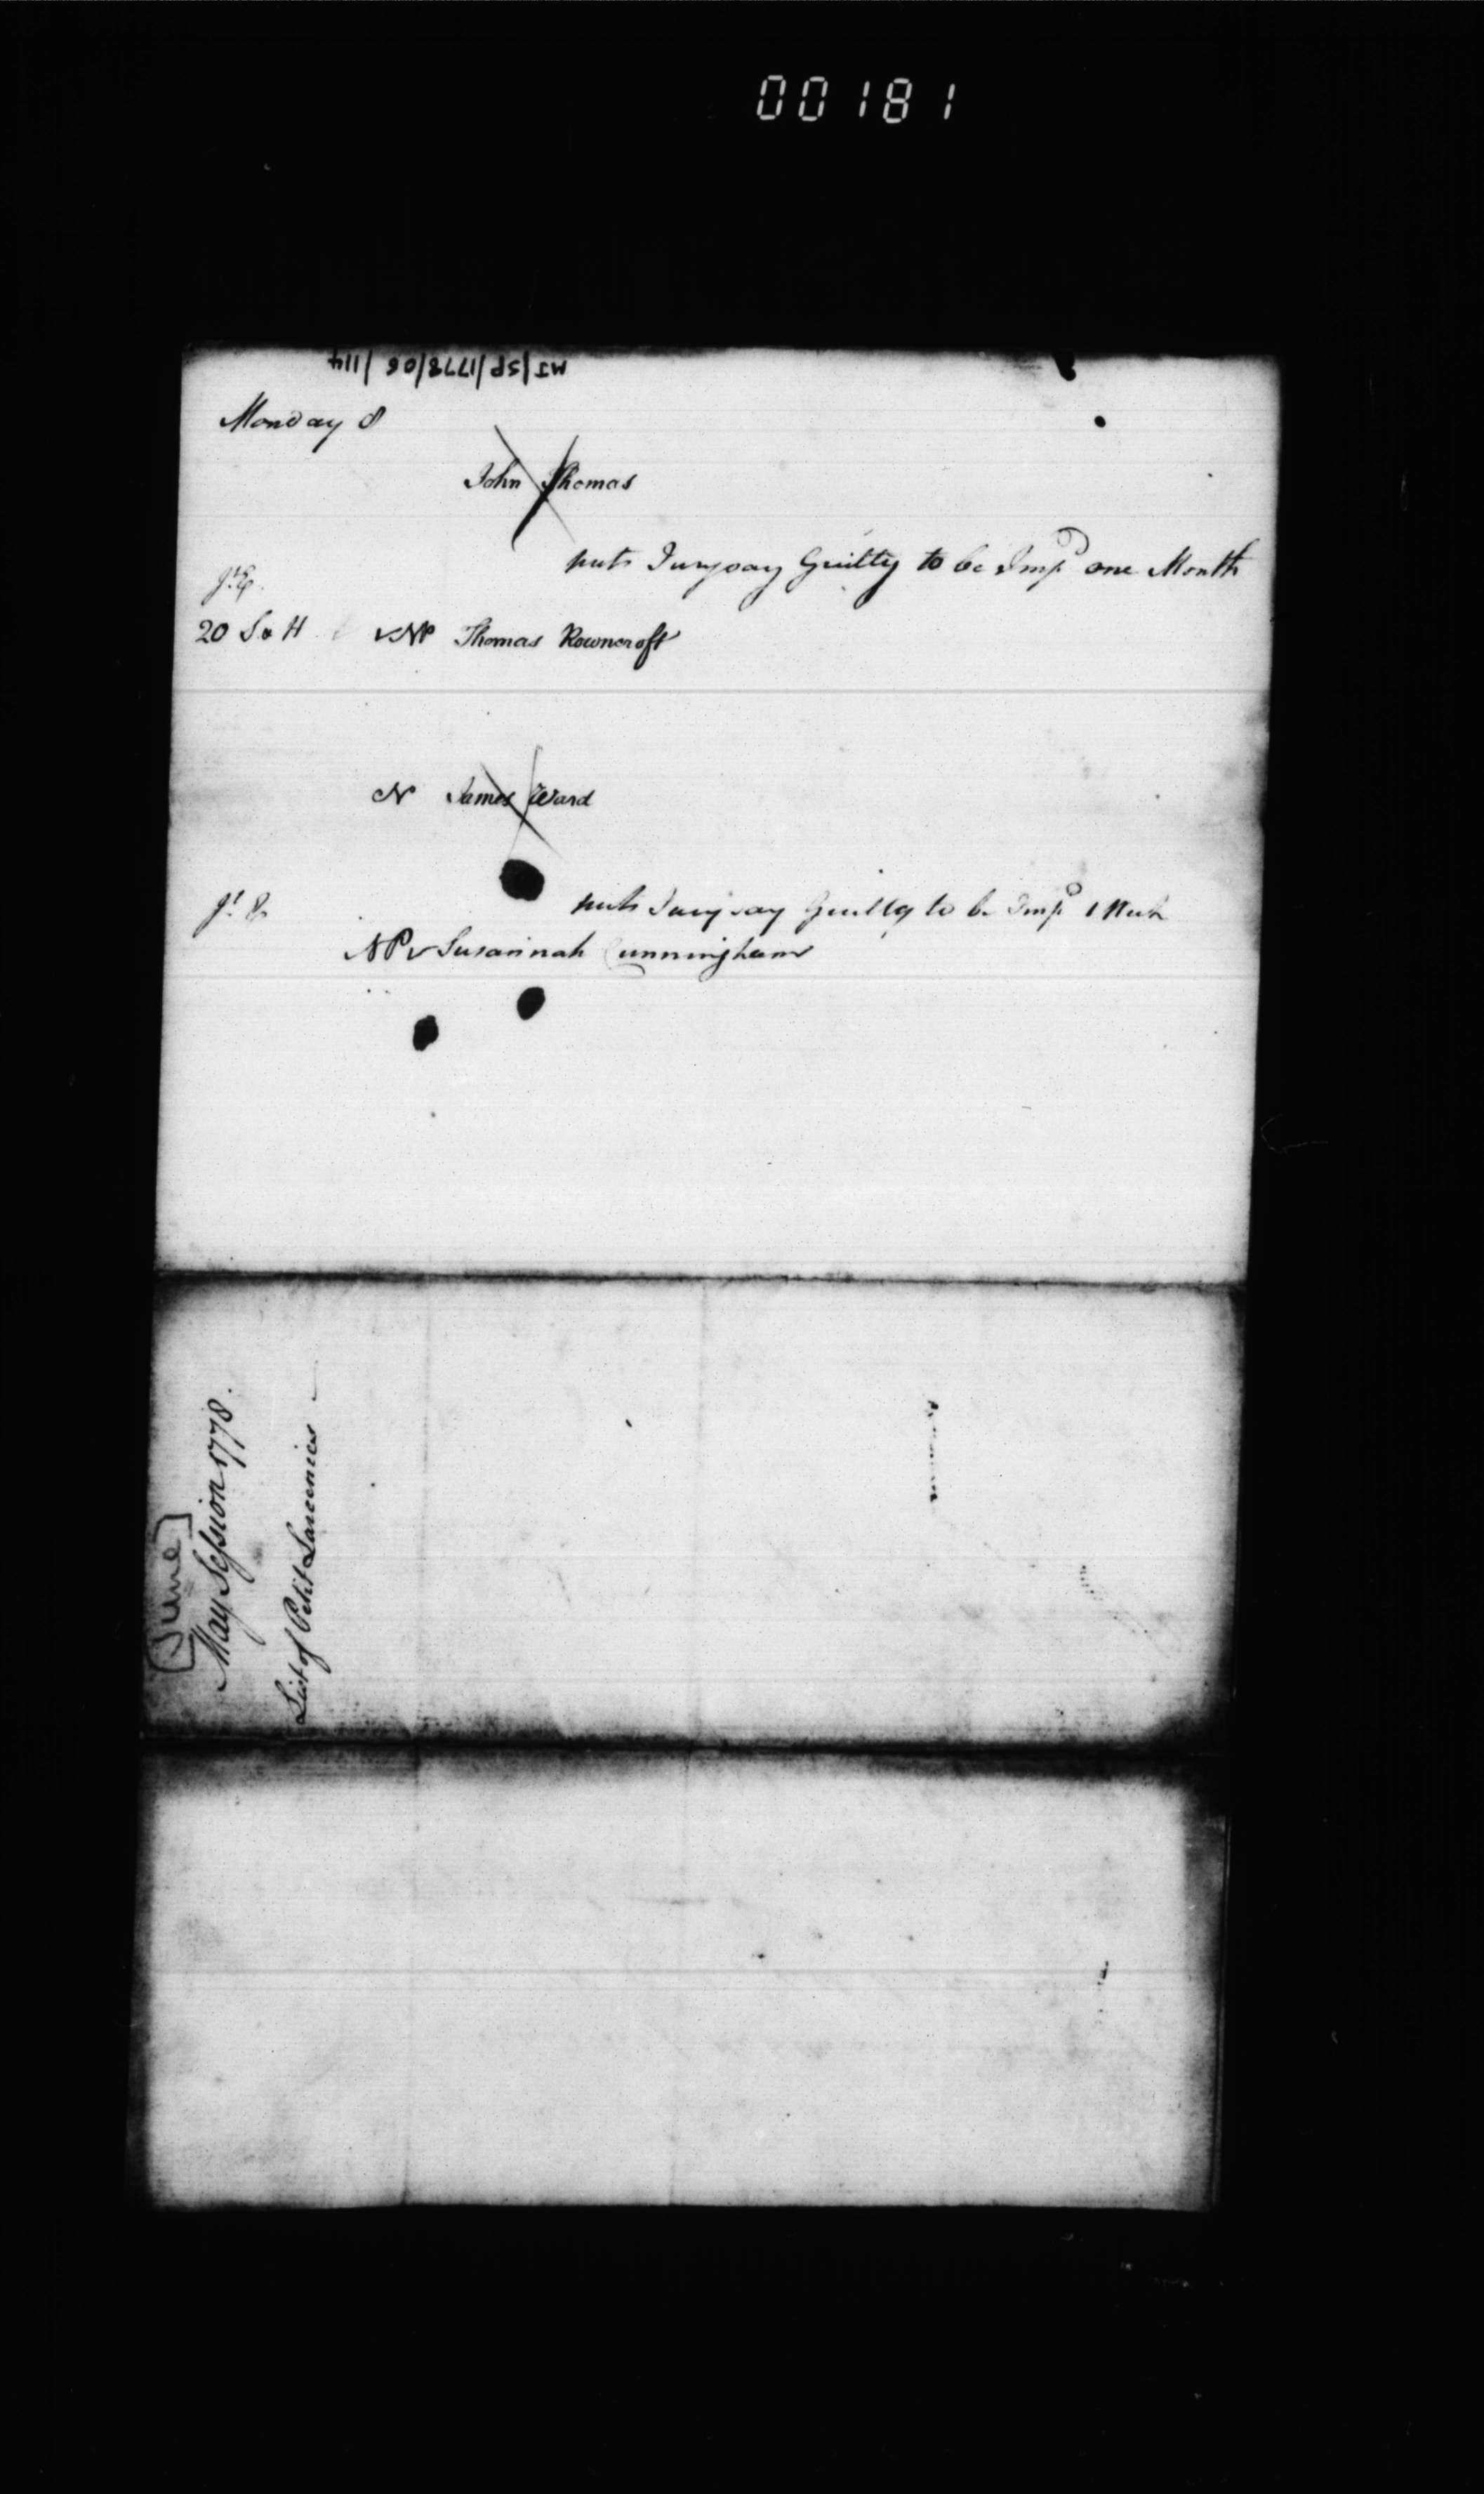 00181
MJ/SP/1778/06/114
Monday 8
John Thomas
puts Jury say Guilty to be Imp^d one Month
20 S & H NP Thomas Rowncroft
N James Ward
puts Jury say Guilty to be Imp^d 1 Week
NP Susannah Cunningham
[June]
May Session 1778.
List of Petit Larcenies